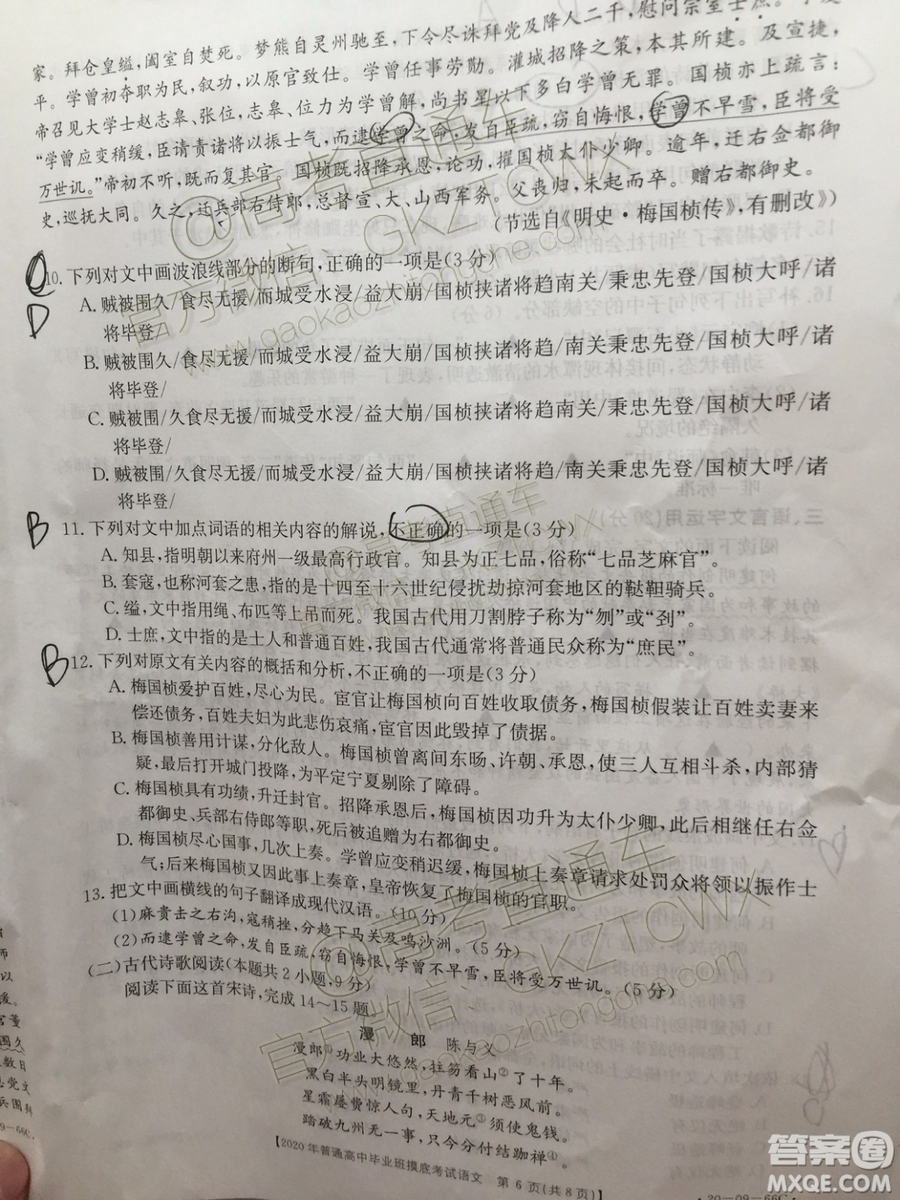 家。拜仓皇缢，阖室自焚死。梦熊自灵州驰至，下令尽诛拜党及降人二千，慰问宗室士庶。
平。学曾初夺职为民，叙功，以原官致仕。学曾任事劳勋。灌城招降之策，本其所建。及宣捷，
帝召见大学士赵志皋、张位，志皋、位力为学曾解，尚书星以下多白学曾无罪。国桢亦上疏言：
“学曾应变稍缓，臣请责诸将以振士气，而逮学曾之命，发自臣疏，窃自悔恨，学曾不早雪，臣将受
万世讥。”帝初不听，既而复其官。国桢既招降承恩，论功，擢国桢太仆少卿。逾年，迁右佥都御
史，巡抚大同。久之，迁兵部右侍郎，总督宣、大、山西军务。父丧归，未起而卒。赠右都御史。
（节选自《明史·梅国桢传》，有删改）
10. 下列对文中画波浪线部分的断句，正确的一项是（3分）
D
A. 贼被围久/食尽无援/而城受水浸/益大崩/国桢挟诸将趋南关/秉忠先登/国桢大呼/诸
将毕登/
B. 贼被围久/食尽无援/而城受水浸/益大崩/国桢挟诸将趋/南关/秉忠先登/国桢大呼/诸
将毕登/
C. 贼被围/久食尽无援/而城受水浸/益大崩/国桢挟诸将趋南关/秉忠先登/国桢大呼/诸
将毕登/
D. 贼被围/久食尽无援/而城受水浸/益大崩/国桢挟诸将趋/南关/秉忠先登/国桢大呼/诸
将毕登/
B
11. 下列对文中加点词语的相关内容的解说，不正确的一项是（3分）
A. 知县，指明朝以来府州一级最高行政官。知县为正七品，俗称“七品芝麻官”。
B. 套寇，也称河套寇患，是指十四至十六世纪侵扰劫掠河套地区的鞑靼骑兵。
C. 缢，文中指用绳、布匹等上吊而死。我国古代用刀割脖子称为“刎”或“刭”。
D. 士庶，文中指的是士人和普通百姓，我国古代通常将普通民众称为“庶民”。
B
12. 下列对原文有关内容的概括和分析，不正确的一项是（3分）
A. 梅国桢爱护百姓，尽心为民。宦官让梅国桢向百姓收取债务，梅国桢假装让百姓卖妻来
偿还债务，百姓夫妇为此悲伤哀痛，宦官因此毁掉了债据。
B. 梅国桢善用计谋，分化敌人。梅国桢曾离间东旸、许朝、承恩，使三人互相斗杀，内部猜
疑，最后打开城门投降，为平定宁夏剔除了障碍。
C. 梅国桢具有功绩，升迁封官。招降承恩后，梅国桢因功为太仆少卿，此后相继任右佥
都御史、兵部右侍郎等职，死后被追赠为右都御史。
D. 梅国桢尽心国事，几次上奏。学曾应变稍迟缓，梅国桢上奏章请求处罚众将领以振作士
气；后来梅国桢又因此事上奏章，皇帝恢复了梅国桢的官职。
13. 把文中画横线的句子翻译成现代汉语。（10分）
（1）麻贵击之右沟，寇稍挫，分趋下马关及鸣沙洲。（5分）
（2）而逮学曾之命，发自臣疏，窃自悔恨，学曾不早雪，臣将受万世讥。（5分）
（二）古代诗歌阅读（本题共2小题，9分）
阅读下面这首宋诗，完成14～15题。
漫 郎 陈与义
漫郎①功业大悠然，拄笏看山②了十年。
黑白半头明镜里，丹青千树恶风前。
星霜屡费惊人句，天地元③须使鬼钱。
踏破九州无一事，只今分付结跏禅④。
【2020年普通高中毕业班摸底考试语文 第6页（共8页）】
·20-09-66C·
@高考直通车
官方微信：GKZTCWX
www.gaokaozhitongche.com
答案圈
MXQE.COM